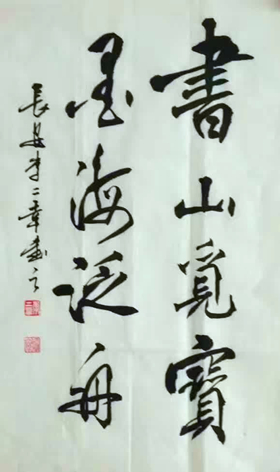 書山覓寶
墨海泛舟
長安李二章書之